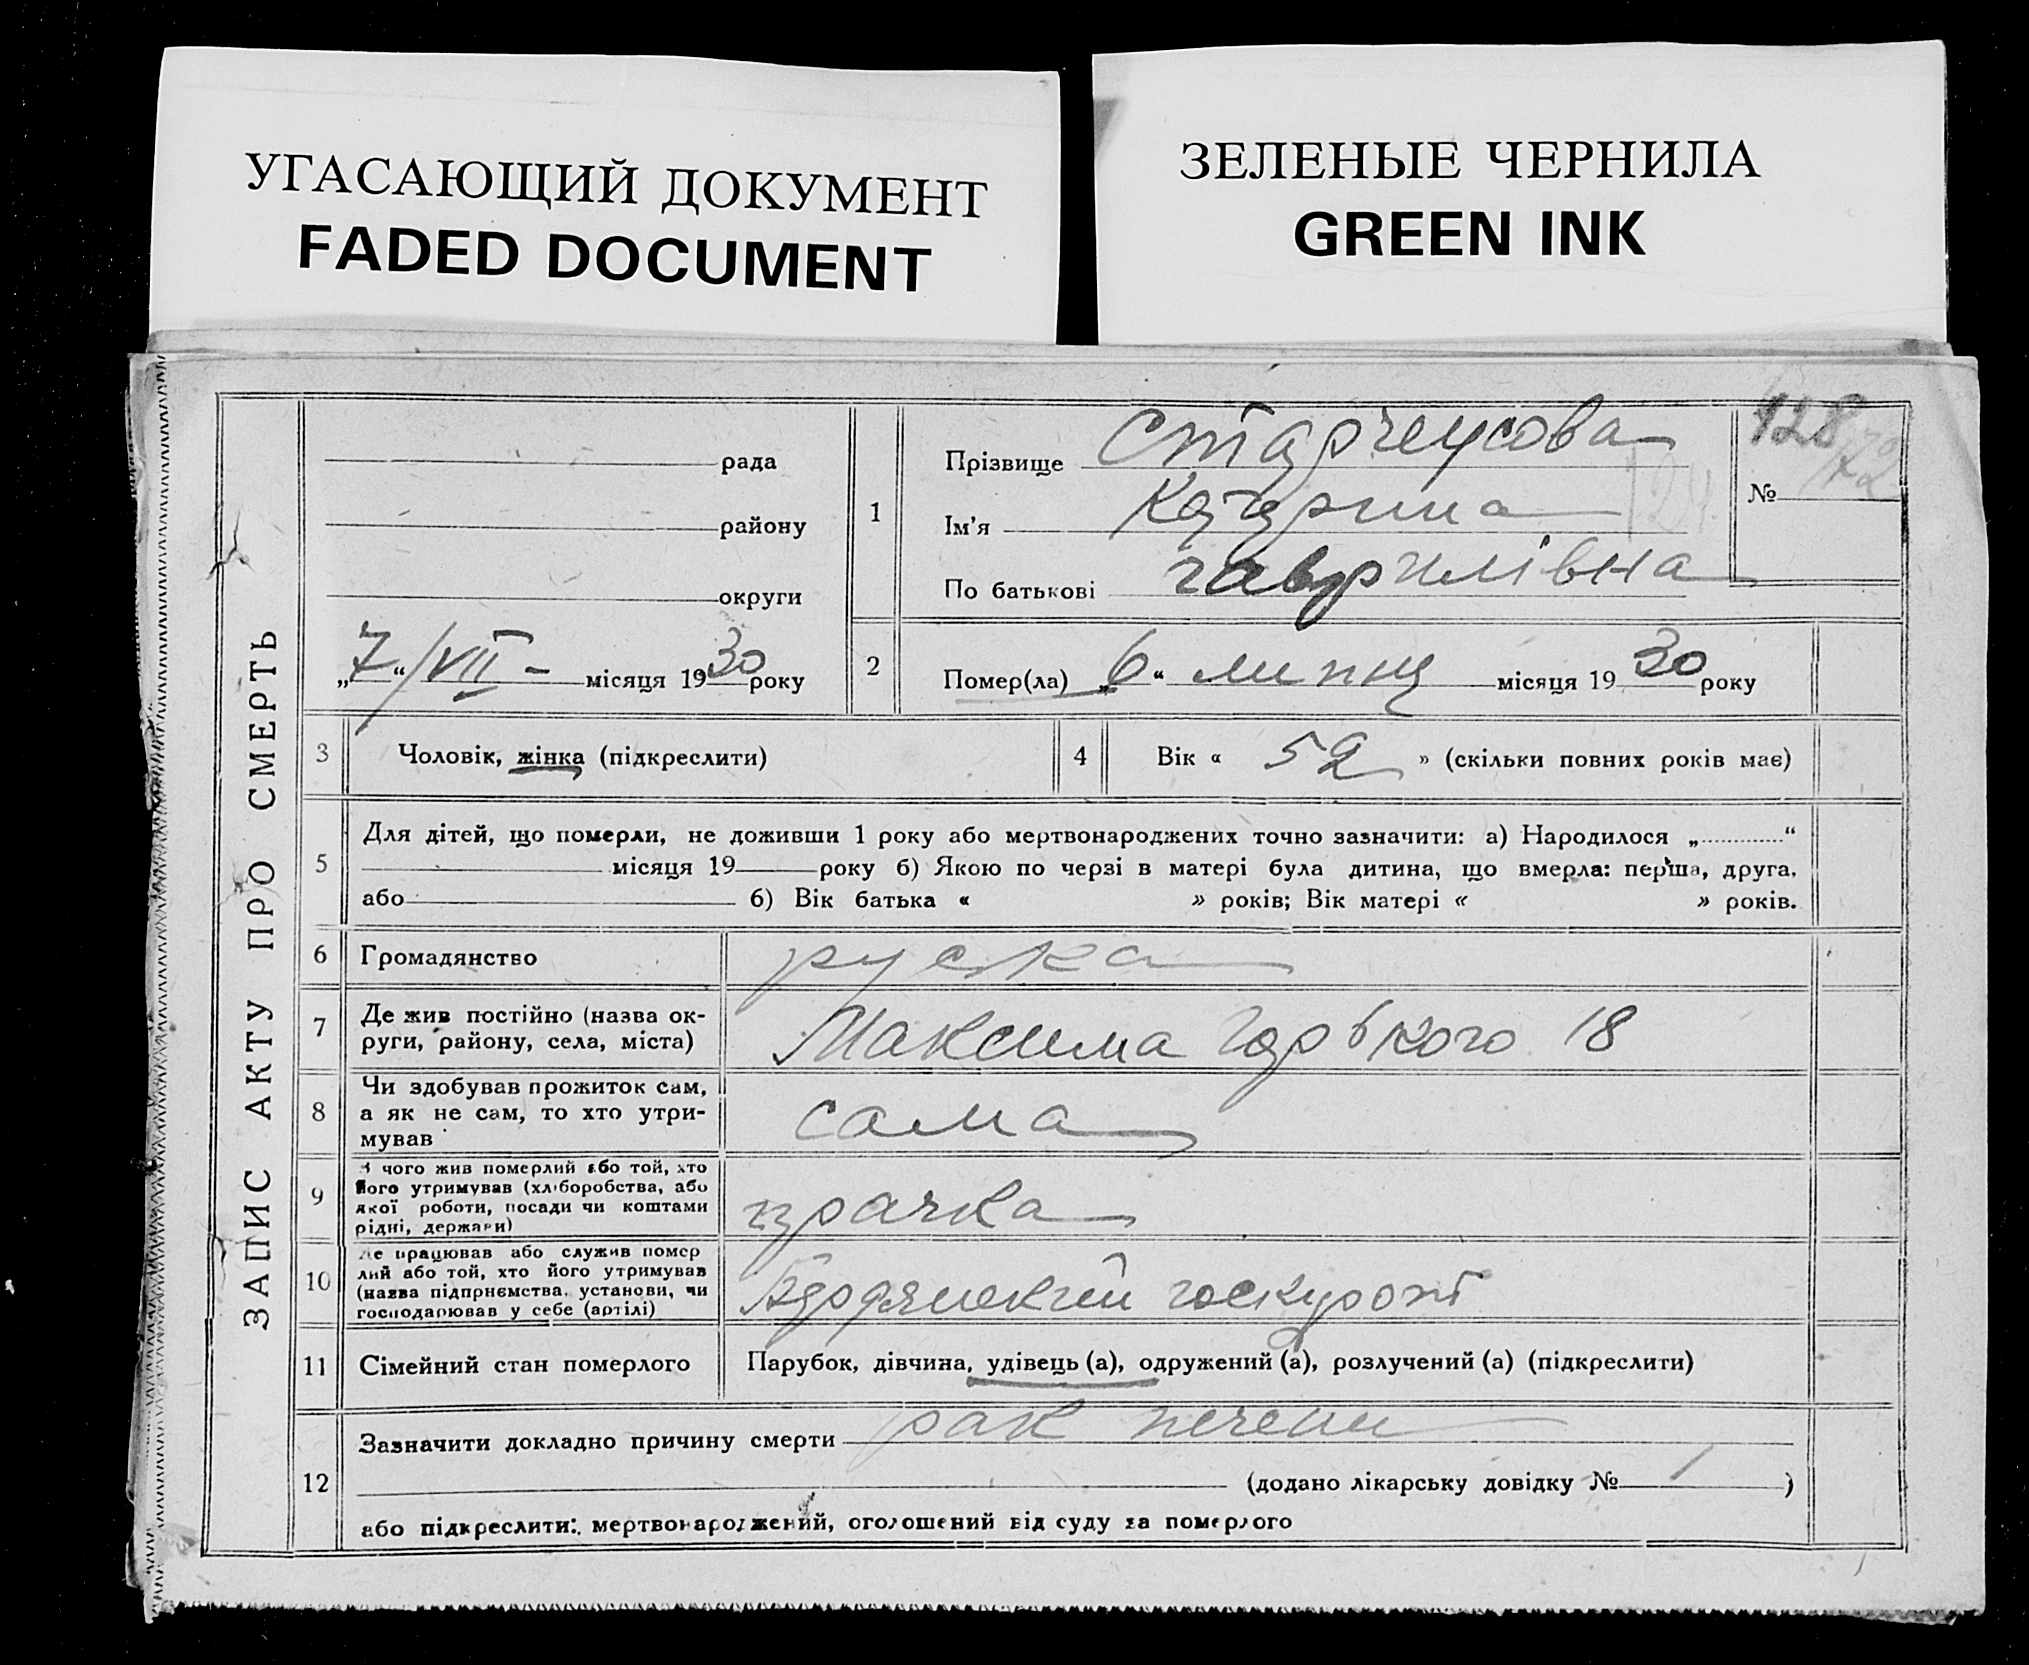 УГАСАЮЩИЙ ДОКУМЕНТ
FADED DOCUMENT
ЗЕЛЕНЫЕ ЧЕРНИЛА
GREEN INK
ЗАПИС АКТУ ПРО СМЕРТЬ
рада
району
округи
„7“/VII – місяця 1930 року
1
Прізвище Старчеусова
Ім'я Катерина
По батькові Гаврилівна
128
№
2
Помер(ла) „6“ липця місяця 1930 року
3
Чоловік, жінка (підкреслити)
4
Вік « 52 » (скільки повних років має)
5
Для дітей, що померли, не доживши 1 року або мертвонароджених точно зазначити: а) Народилося „ “
місяця 19 року б) Якою по черзі в матері була дитина, що вмерла: перша, друга,
або б) Вік батька « » років; Вік матері « » років.
6
Громадянство руска
7
Де жив постійно (назва ок-
руги, району, села, міста)
Максима Горького 18
8
Чи здобував прожиток сам,
а як не сам, то хто утри-
мував
сама
9
З чого жив померлий або той, хто
його утримував (хліборобства, або
якої роботи, посади чи коштами
рідні, держави)
прачка
10
Де працював або служив помер
лий або той, хто його утримував
(назва підприємства, установи, чи
господарював у себе (артілі)
Бердянский госкурорт
11
Сімейний стан померлого
Парубок, дівчина, удівець (а), одружений (а), розлучений (а) (підкреслити)
12
Зазначити докладно причину смерти рак печени
(додано лікарську довідку № )
або підкреслити: мертвонароджений, оголошений від суду за померлого